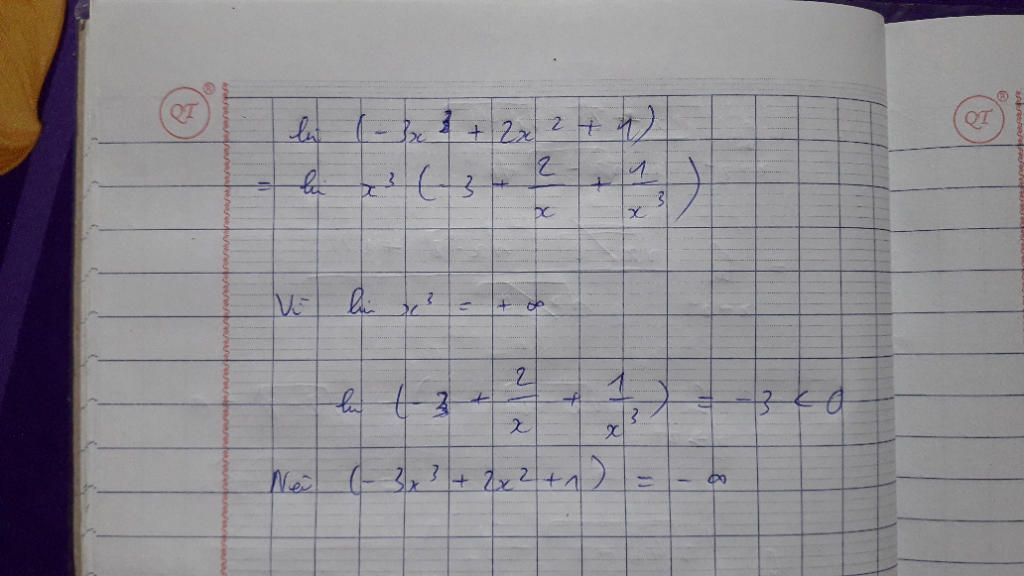 QT® QT®
lim (-3x³ + 2x² + 1)
= lim x³ (-3 + 2/x + 1/x³)
Vì lim x³ = + ∞
lim (-3 + 2/x + 1/x³) = -3 < 0
Nên (-3x³ + 2x² + 1) = - ∞